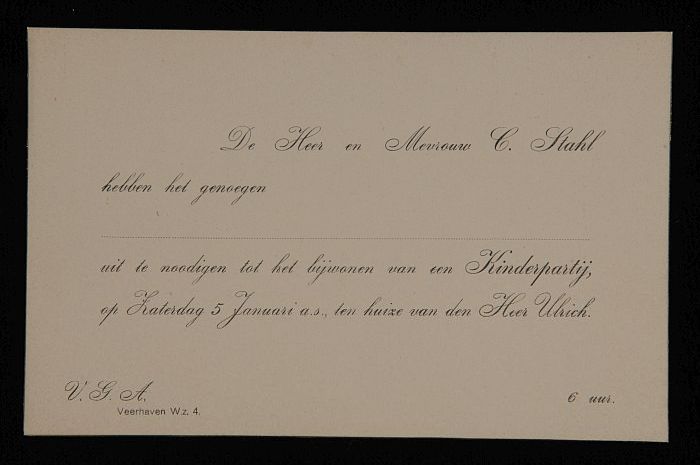 De Heer en Mevrouw C. Stahl
hebben het genoegen
uit te noodigen tot het bijwonen van een Kinderpartij,
op Zaterdag 5 Januari a.s., ten huize van den Heer Ulrich.
V. G. A.
6 uur.
Veerhaven W.z. 4.